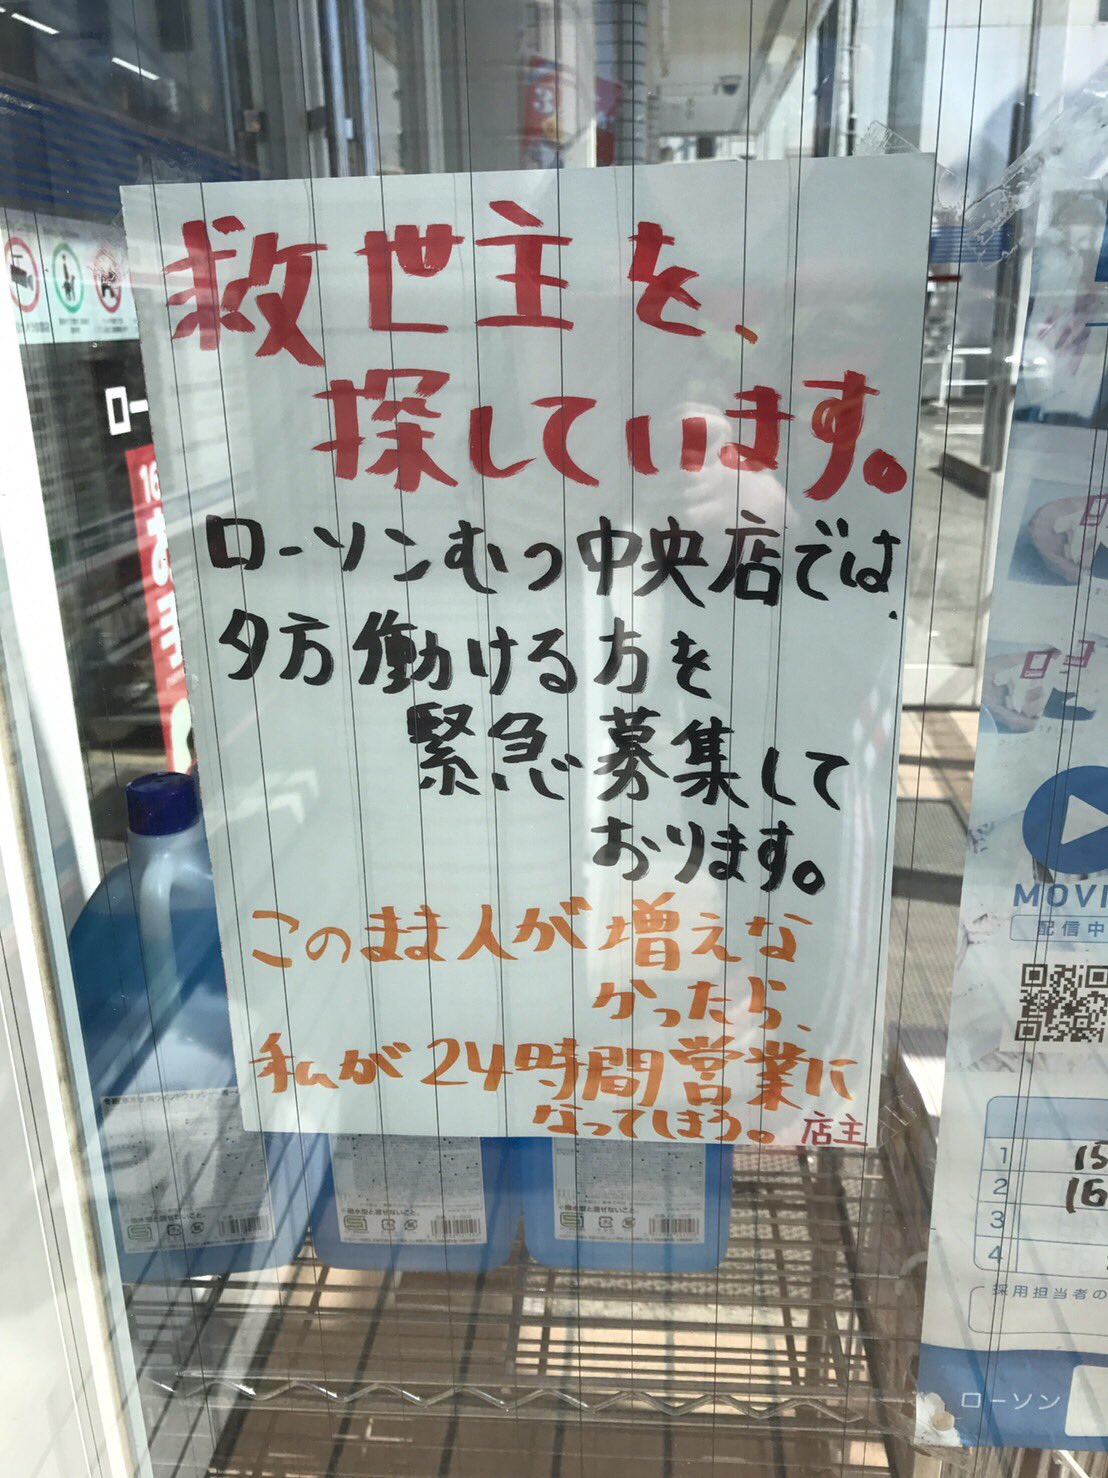 救世主を、
探しています。
ローソンむつ中央店では、
夕方働ける方を
緊急募集して
おります。
このまま人が増えな
かったら、
私が24時間営業に
なってしまう。 店主
MOVI
配信中
1 15
2 16
3
4
採用担当者の
ローソン